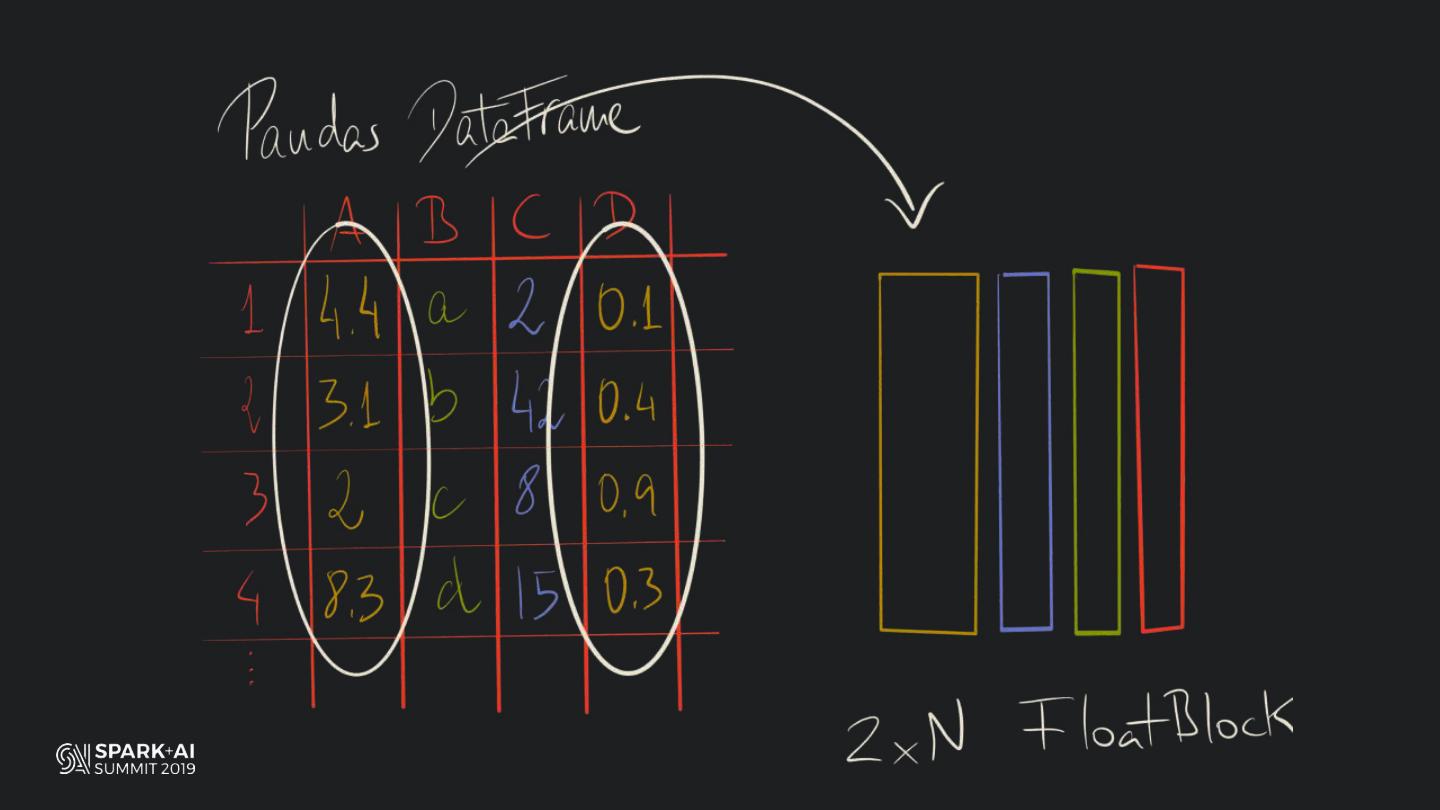 Pandas DataFrame
A B C D
1 4.4 a 2 0.1
2 3.1 b 42 0.4
3 2 c 8 0.9
4 8.3 d 15 0.3
2xN FloatBlock
SPARK+AI
SUMMIT 2019